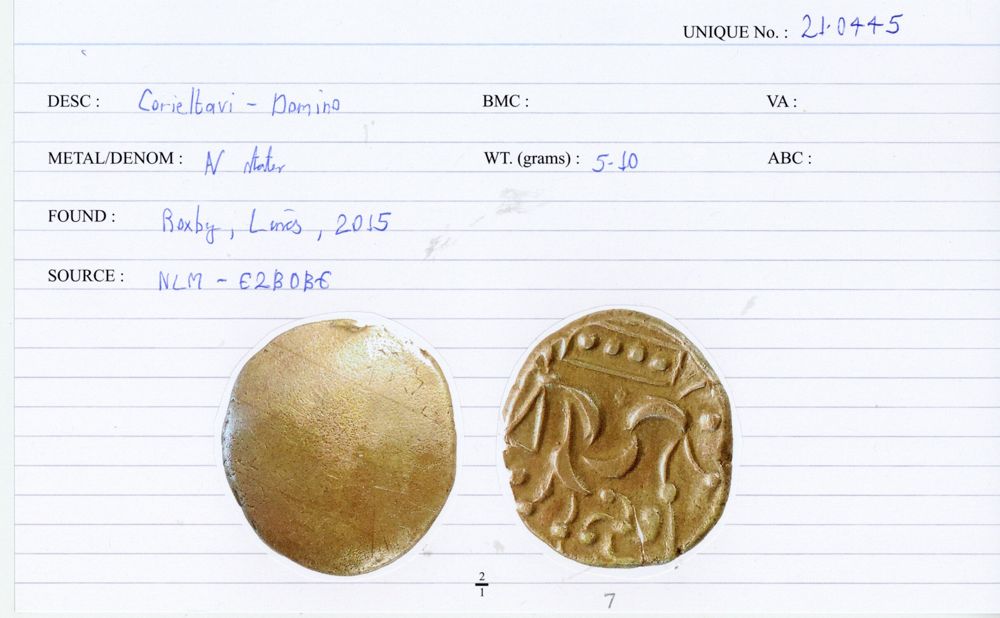 UNIQUE No. : 21.0445
DESC : Corieltavi - Domino BMC : VA :
METAL/DENOM : N stater WT. (grams) : 5.10 ABC :
FOUND : Roxby, Lincs, 2015
SOURCE : NLM - E2B0BE
2/1
7